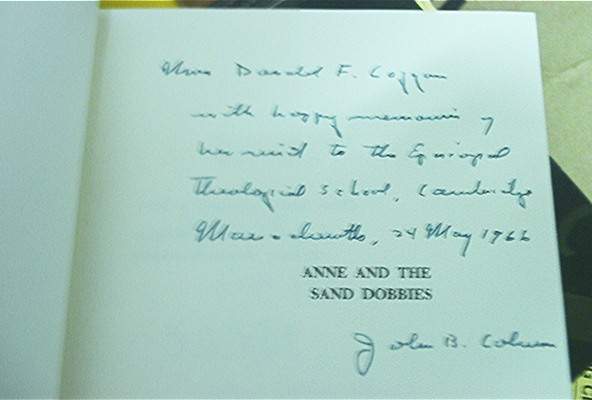 Mrs. Donald F. Coggan
with happy memories of
her visit to the Episcopal
Theological School, Cambridge
Massachusetts, 24 May 1966
ANNE AND THE
SAND DOBBIES
John B. Coburn